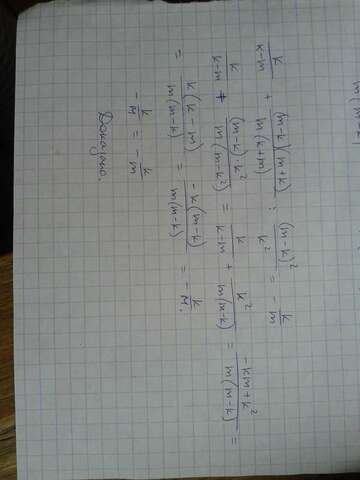 k/(k-m) + (m-k)(m+k)/(m(k+m)) : (m-k)²/k² = - k/m
k/(k-m) + (m-k)·k²/(m(m-k)²) = k/(k-m) + k²/(m(m-k)) = (-km+k²)/(m(m-k)) =
= k(k-m)/(m(m-k)) = -k(m-k)/(m(m-k)) = - k/m.
- k/m = - k/m
Доказано.